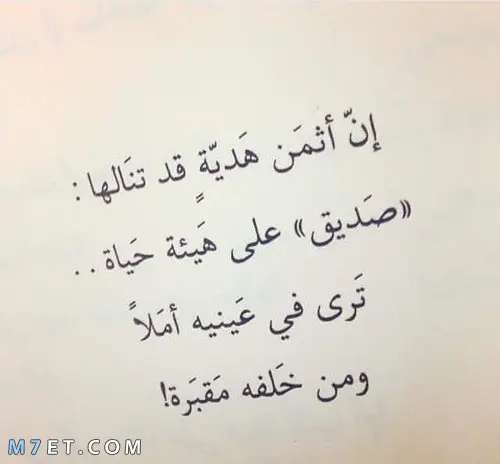 إنّ أثمَن هَديّةٍ قد تنَالها :
«صَديق» على هَيئة حَياة . .
تَرى في عَينيه أمَلاً
ومن خَلفه مَقبَرة!
M7ET.COM